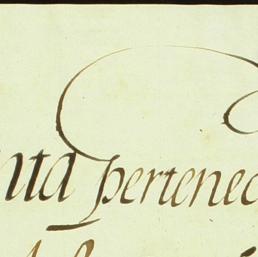 nta pertenec